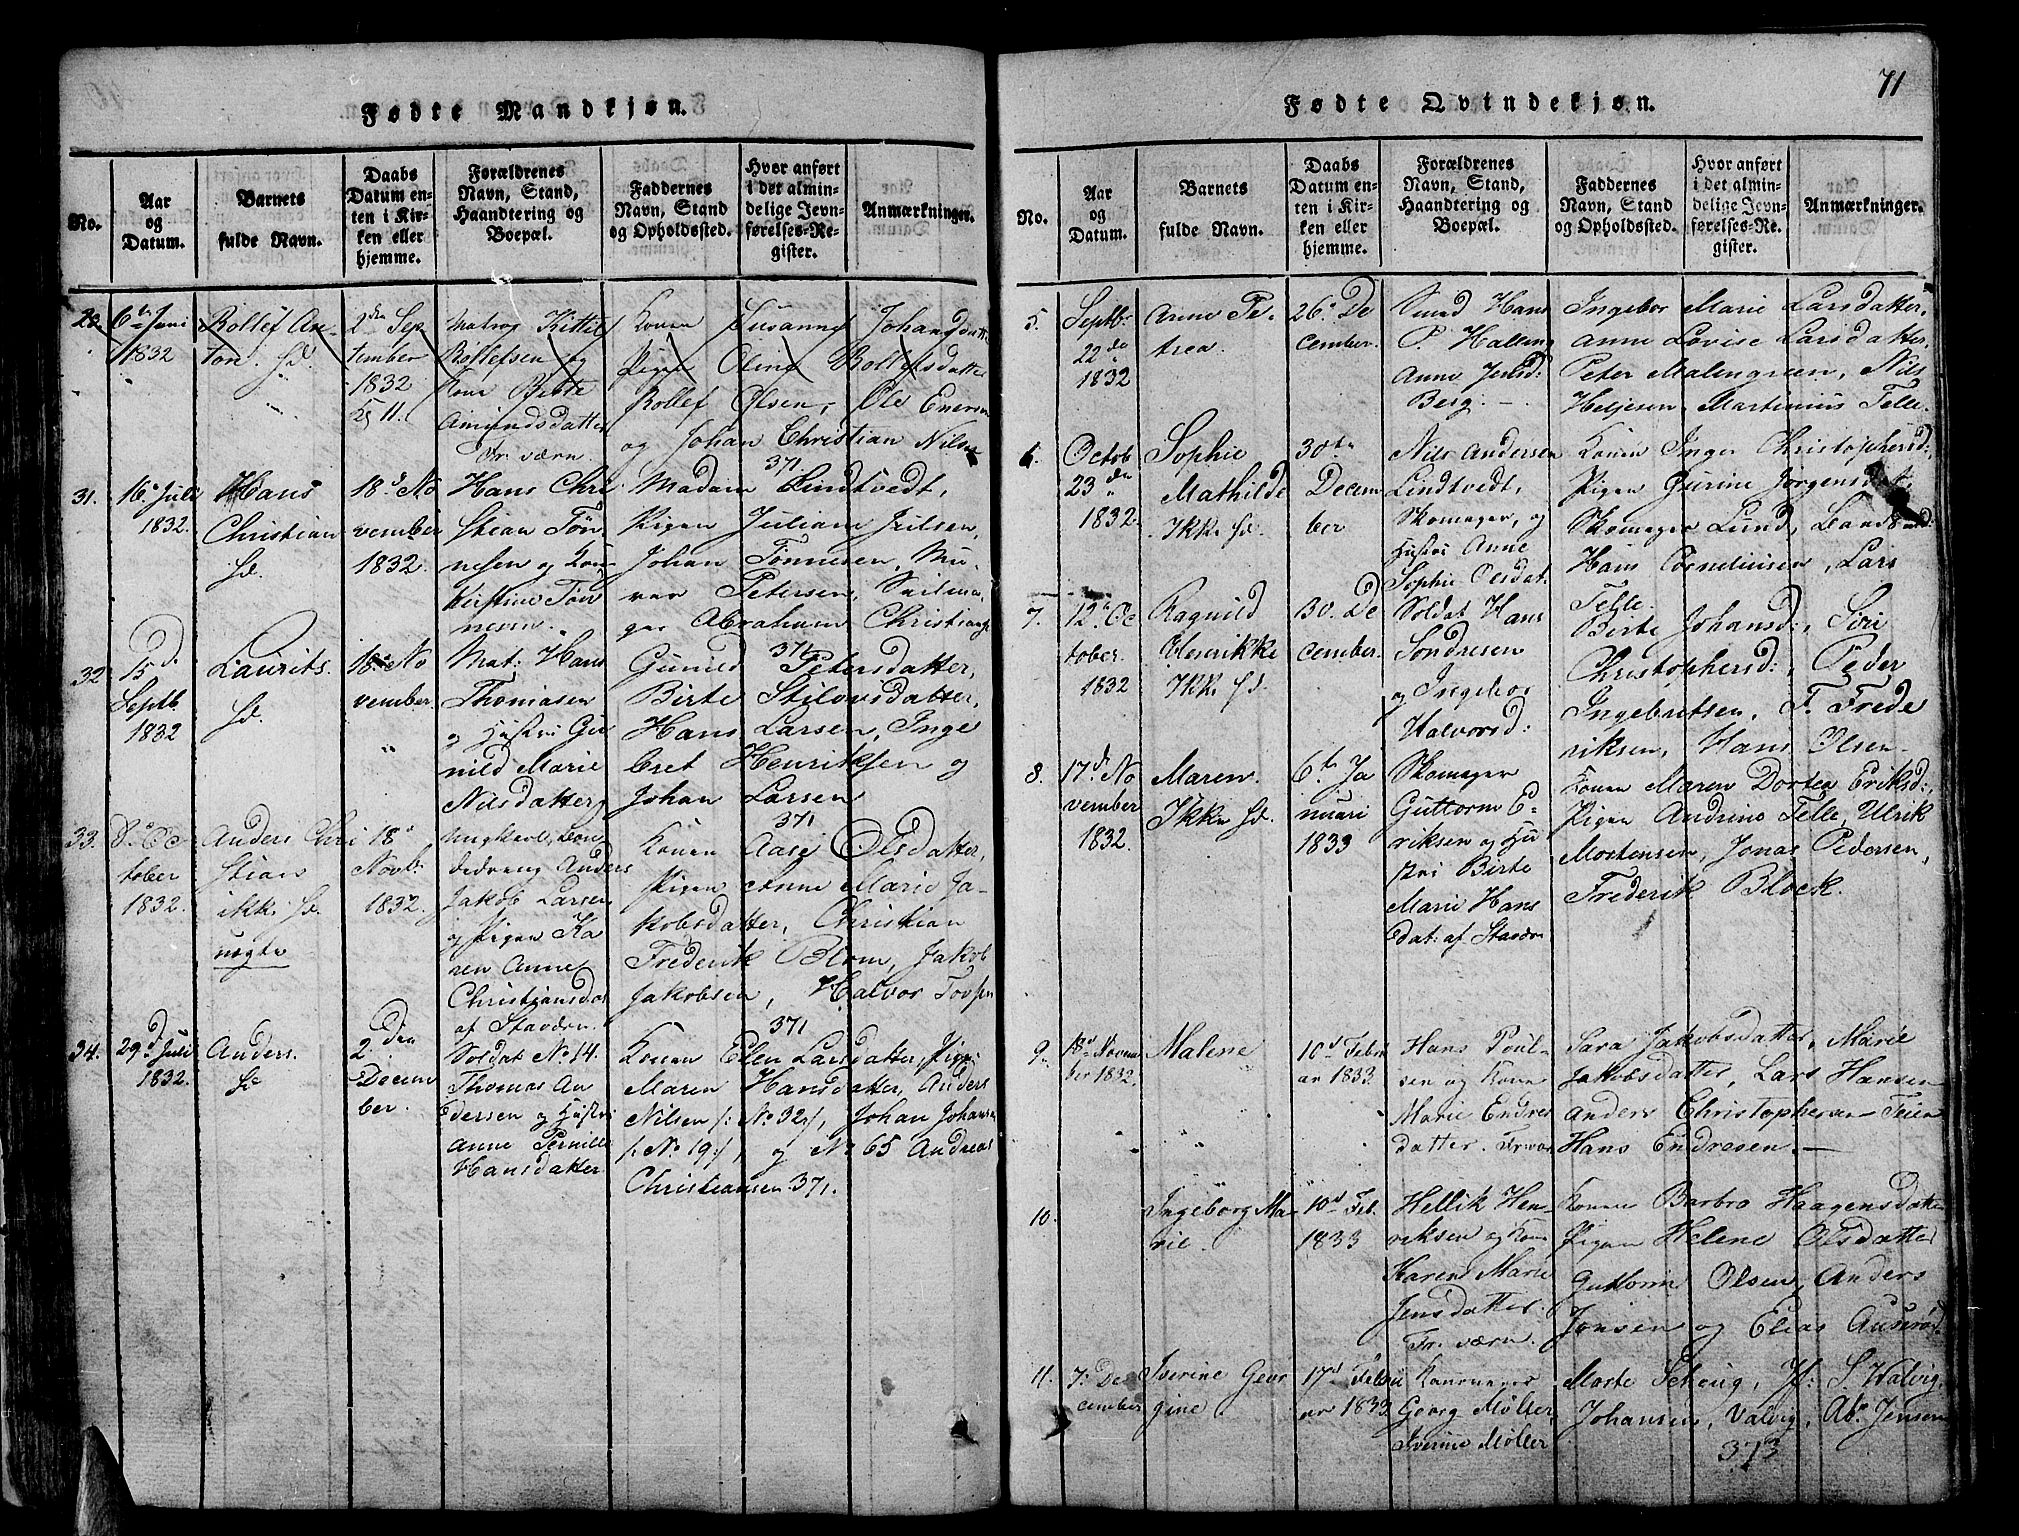 71
Fødte Mandkjøn.
No.
Aar
og
Datum.
Barnets
fulde Navn.
Daabs
Datum en-
ten i Kir-
ken eller
hjemme.
Forældrenes
Navn, Stand,
Haandtering og
Boepæl.
Faddernes
Navn, Stand
og Opholdssted.
Hvor anført
i det almin-
delige Jevn-
førelses-Re-
gister.
Anmærkninger.
6te Juni
1832
Rollef An-
ton. Hd.
2den Sep
tember
1832
Matros Kittil
Rollefsen og
Kone Birte
Amundsdatter
Fr. værn.
Konen Susanne Johansdatter
Pigen Oline Rollefsdatter
Rollef Olsen, Ole Enersen
og Johan Christian Nilsen
371
31.
16. Juli
1832.
Hans
Christian
Hd.
18d No
vember
1832.
Hans Chri
stian Tøn-
nesen og Kone
Kirstine Tøn
nesen.
Madam Lindtvedt,
Pigen Juliane Juilsen,
Johan Tønnesen, Mu-
rer Petersen, Seilma-
ger Abraham Christians
371
32
15d
Septb.
1832
Laurits.
Hd.
18de No
vember
Mat: Hans
Thomasen
og Hustri Gu
nild Marie
Nilsdatter
Gunild Petersdatter,
Birte Stilovsdatter,
Hans Larsen, Inge
bret Henriksen og
Johan Larsen
371
33.
8de Oc-
tober
1832.
Anders Chri
stian
ikke Hd.
uægte
18d
Novb:
1832.
Ungkarl, Bon
dedreng Anders
Jakob Larsen
og Pigen Ka
ren Anne
Christiansdat
af Staværn.
Konen Aase Olsdatter,
Pigen Anne Marie Ja-
kobsdatter, Christian
Frederik Blom, Jakob
Jakobsen, Halvor Tovsen
371
34.
29d Juli
1832.
Anders.
Hd
2den
Decem
ber.
Soldat No 14.
Thomas An
dersen og Hustri
Anne Pernille
Hansdatter.
Konen Elen Larsdatter, Pigen
Maren Hansdatter, Anders
Nilsen /: No 32 /, Johan Johansen
/: No 19 :/, og No 65 Andreas
Christiansen. 371.
Fødte Qvindekjøn.
No.
Aar
og
Datum.
Barnets
fulde Navn.
Daabs
Datum en-
ten i Kir-
ken eller
hjemme.
Forældrenes
Navn, Stand,
Haandtering og
Boepæl.
Faddernes
Navn, Stand
og Opholdssted.
Hvor anført
i det almin-
delige Jevn-
førelses-Re-
gister.
Anmærkninger.
5.
Septb:
22de
1832
Anne Pe-
trea.
26. De
cember.
Smed Hans
P. Halling
Anne Jensd:
Berg. —
Ingebor Marie Larsdatter,
Anne Lovise Larsdatter,
Peter Malmgreen, Nils
Heljesen, Martinius Telle.
6.
Octob
23de
1832.
Sophie
Mathilde
Ikke Hd.
30te
Decem
ber
Nils Andersen
Lindtvedt,
Skomager, og
Hustri Anne
Sophie Olsdat.
Konen Inger Christophersd:,
Pigen Gurine Jørgensdat:
Skomager Lund,
Hans Corneliusen, Lars
Telle.
7.
12te Oc
tober.
1832
Ragnild
Henrikke
Ikke Hd.
30. De
cember.
Soldat Hans
Sondresen
og Ingebor
Halvorsd:
Birte Johansd:, Siri
Christophersd:, Peder
Ingebretsen, F. Frede
riksen, Hans Olsen.
8.
17de No
vember
1832.
Maren.
Ikke Hd.
6te Ja
nuari
1833
Skomager
Guttorm E-
riksen og Hu
stri Birte
Marie Hans
dat: af Stavær
Konen Maren Dortea Eriksd:,
Pigen Andrine Telle, Ulrik
Mortensen, Jonas Pedersen,
Frederik Block.
9.
18d Novem
ber 1832.
Malene
10d Febru
ar 1833.
Hans Poul-
sen og Kone
Marie Endres
datter. Fr:vær
Sara Jakobsdatter, Marie
Jakobsdatter, Lars Hansen
Anders Christophersen Teien
Hans Endresen. —
10.
Ingeborg Ma-
rie.
10d Feb.
1833
Hellik Hen-
riksen og Kone
Karen Marie
Jensdatter.
Fr. værn.
Konen Barbro Haagensdatter
Pigen Helene Olsdatter
Guttorm Olsen, Anders
Jonsen og Elias
11.
7. De-
cember
Iverine Geor
gine
17d Febru
ar 1833
Georg Møller,
Iverine Møller
Marte Scheug, Jf: S. Walvig,
Johansen, Valvig, Ab. Jensen
373